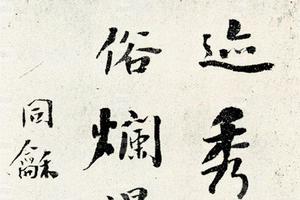 迹秀
俗爛
同龢